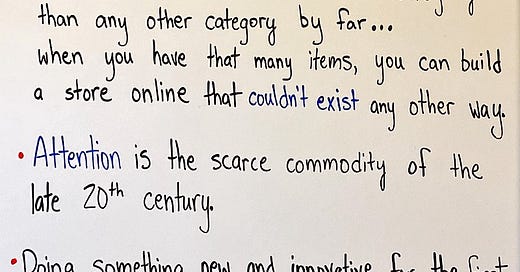 than any other category by far...
when you have that many items, you can build
a store online that couldn't exist any other way.
• Attention is the scarce commodity of the
late 20th century.
• Doing something new and innovative for the first